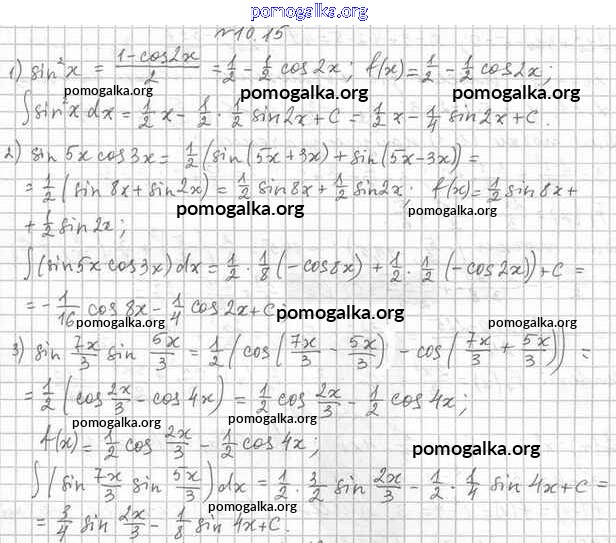 pomogalka.org
№10.15
1) sin²x = (1-cos2x)/2 = 1/2 - 1/2 cos2x; f(x) = 1/2 - 1/2 cos2x;
pomogalka.org pomogalka.org
∫sin²x dx = 1/2 x - 1/2 · 1/2 sin2x + C = 1/2 x - 1/4 sin2x + C.
pomogalka.org pomogalka.org
2) sin 5x cos3x = 1/2 (sin(5x+3x) + sin(5x-3x)) =
= 1/2 (sin 8x + sin2x) = 1/2 sin8x + 1/2 sin2x; f(x) = 1/2 sin8x +
pomogalka.org pomogalka.org
+ 1/2 sin2x;
∫(sin5x cos3x)dx = 1/2 · 1/8 (-cos8x) + 1/2 · 1/2 (-cos2x)) + C =
= -1/16 cos 8x - 1/4 cos2x + C;
pomogalka.org
pomogalka.org pomogalka.org
3) sin 7x/3 sin 5x/3 = 1/2 (cos(7x/3 - 5x/3) - cos(7x/3 + 5x/3)) =
= 1/2 (cos 2x/3 - cos 4x) = 1/2 cos 2x/3 - 1/2 cos 4x;
pomogalka.org pomogalka.org
f(x) = 1/2 cos 2x/3 - 1/2 cos 4x;
pomogalka.org
∫(sin 7x/3 sin 5x/3)dx = 1/2 · 3/2 sin 2x/3 - 1/2 · 1/4 sin 4x + C =
pomogalka.org pomogalka.org
= 3/4 sin 2x/3 - 1/8 sin 4x + C.